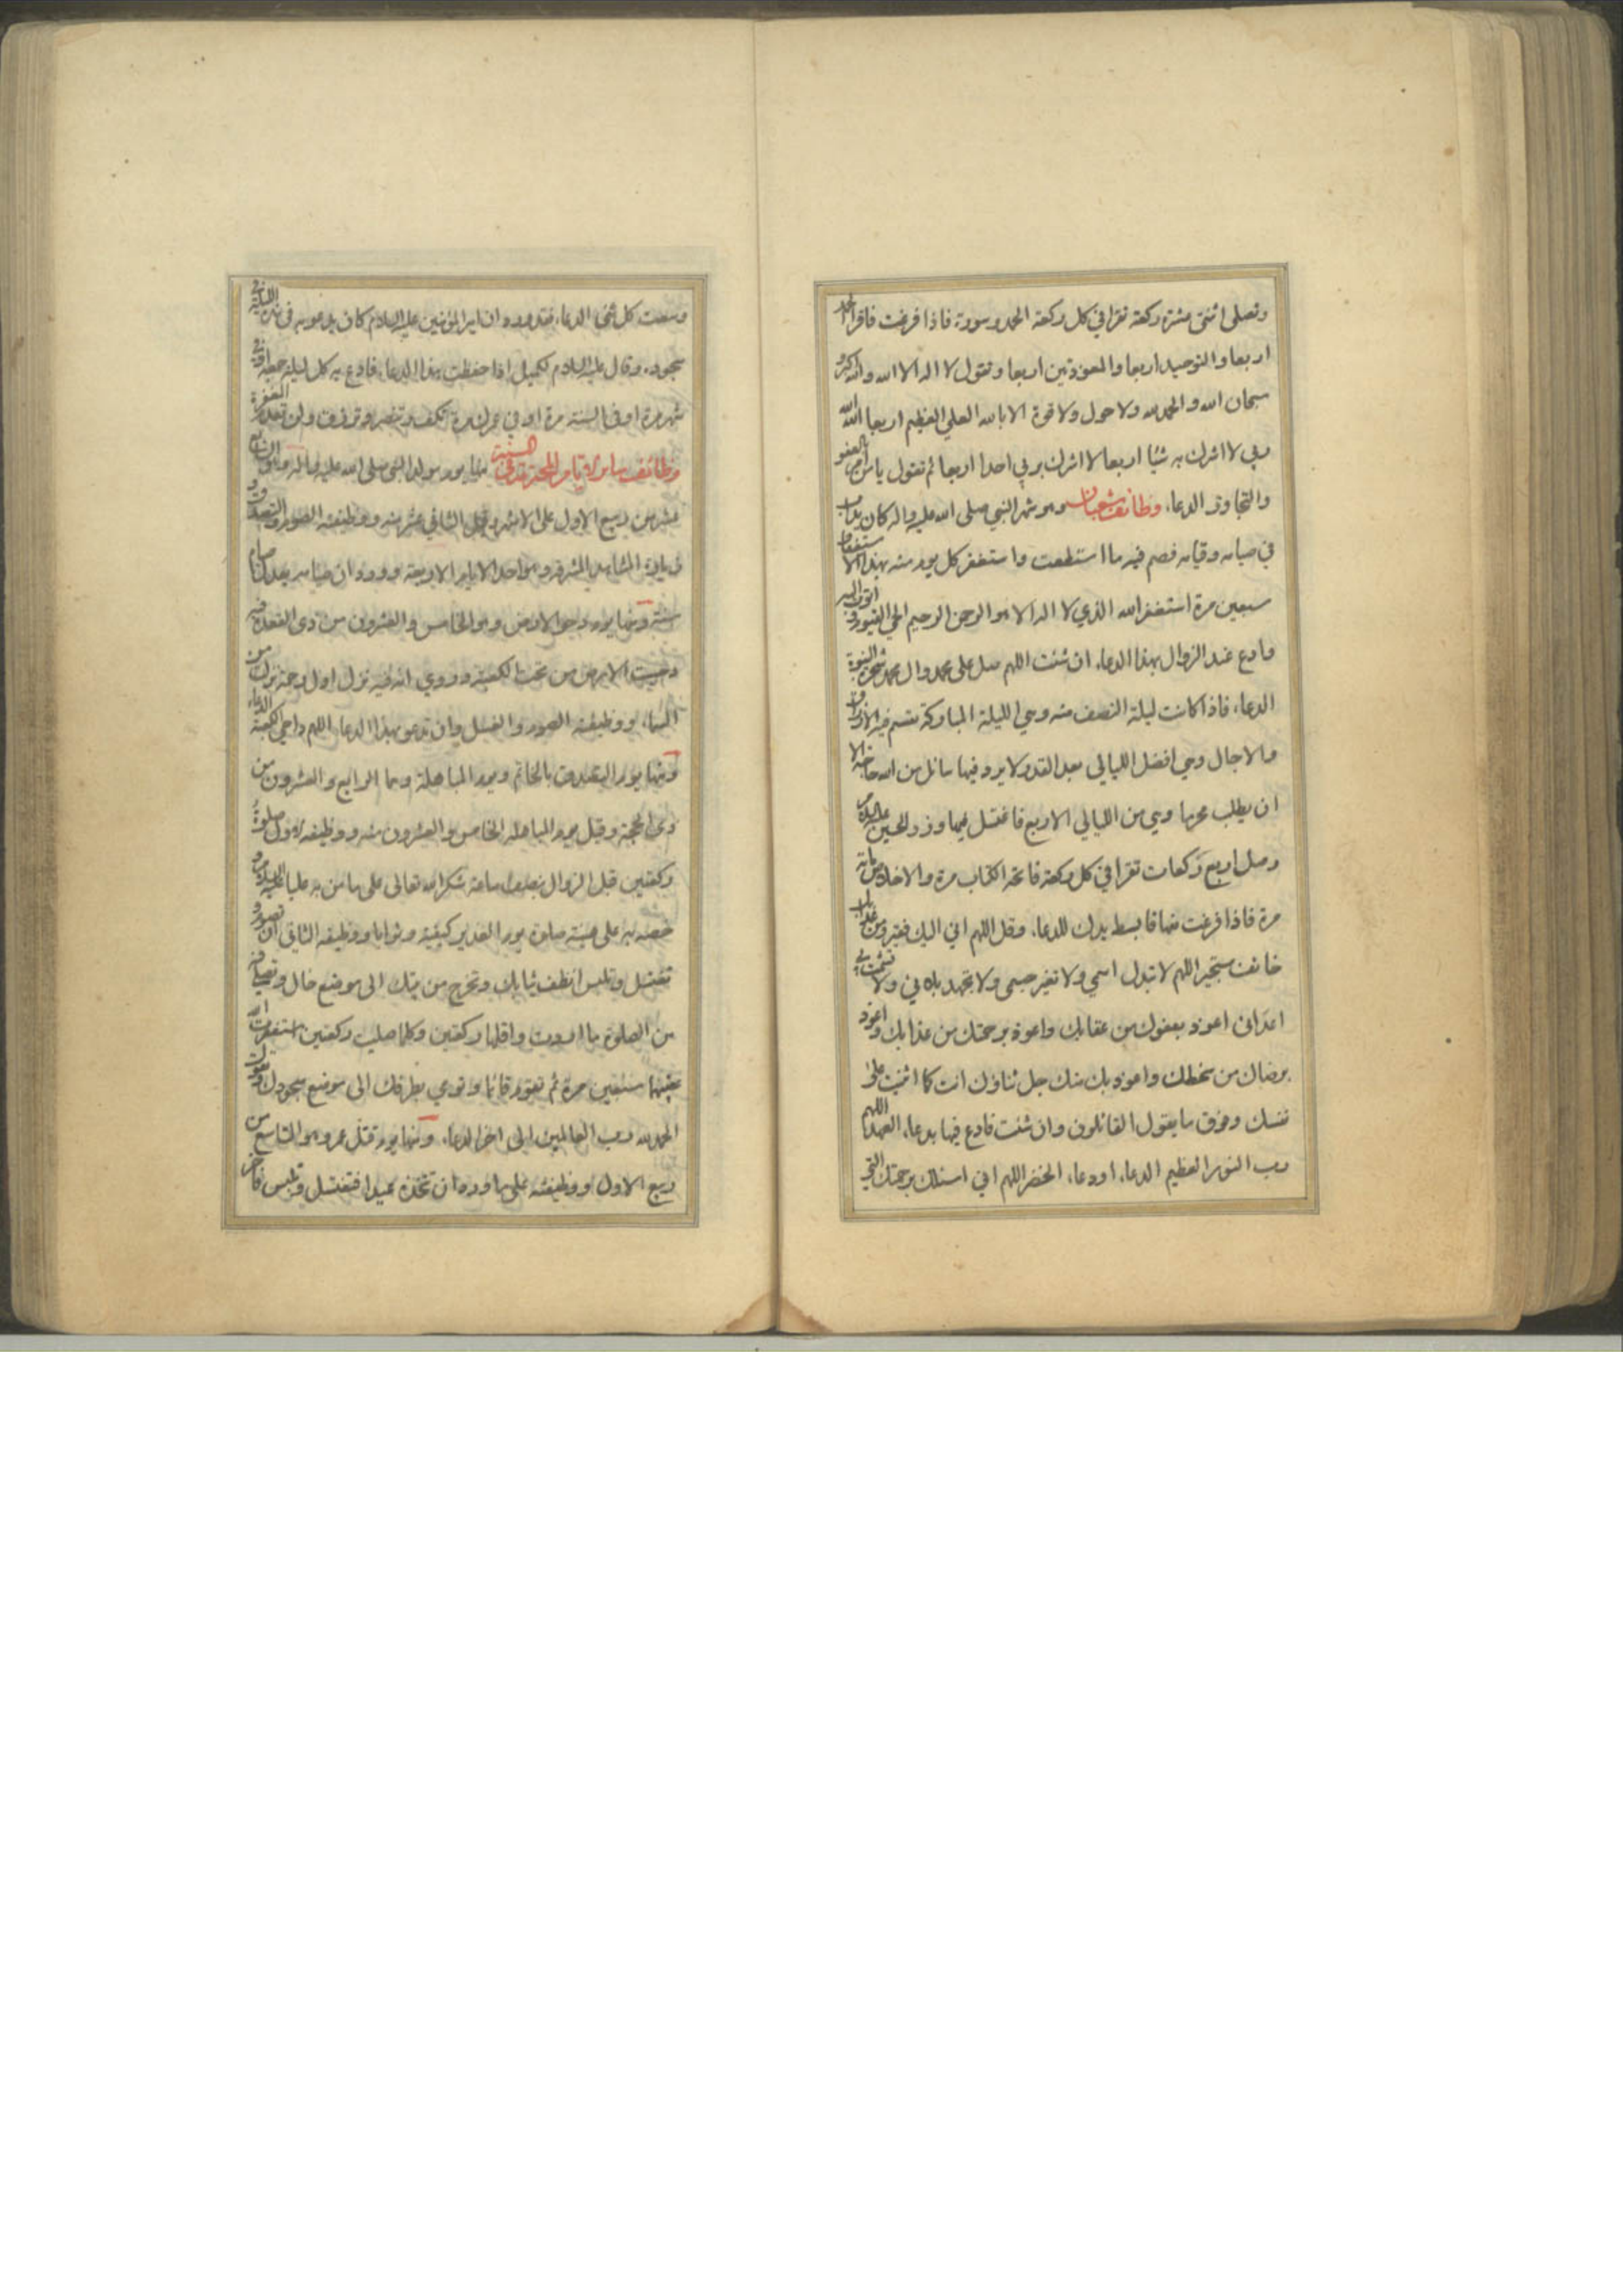 وتصلي اثنتي عشرة ركعة تقرا في كل ركعة الحمد وسورة فاذا فرغت فاقرا الحمد
اربعا والتوحيد اربعا والمعوذتين اربعا وتقول لا اله الا الله والله اكبر و
سبحان الله والحمد لله ولا حول ولا قوة الا بالله العلي العظيم اربعا الله الله
ربي لا اشرك به شيئا اربعا لا اشرك بربي احدا اربعا ثم تقول يا من امر بالعفو
والتجاوز الدعاء وظائف شعبان وهو شهر النبي صلى الله عليه واله كان يداب
في صيامه وقيامه فصم فيه ما استطعت واستغفر كل يوم منه بهذا الاستغفار
سبعين مرة استغفر الله الذي لا اله الا هو الرحمن الرحيم الحي القيوم واتوب اليه
وادع عند الزوال بهذا الدعاء ان شئت اللهم صل على محمد وال محمد شجرة النبوة
الدعاء فاذا كانت ليلة النصف منه وهي الليلة المباركة تقسم فيه الارزاق
والاجال وهي افضل الليالي بعد القدر لا يرد فيها سائل من الله حاجة الا
ان يطلب محرما وهي من الليالي الاربع فاغتسل فيها وزر الحسين عليه السلام
وصل اربع ركعات تقرا في كل ركعة فاتحة الكتاب مرة والاخلاص مائة
مرة فاذا فرغت منها فابسط يدك للدعاء وقل اللهم اني اليك فقير ومن عذابك
خائف مستجير اللهم لا تبدل اسمي ولا تغير جسمي ولا تجهد بلائي ولا تشمت بي
اعدائي اعوذ بعفوك من عقابك واعوذ برحمتك من عذابك واعوذ
برضاك من سخطك واعوذ بك منك جل ثناؤك انت كما اثنيت على
نفسك وفوق ما يقول القائلون وان شئت فادع فيها بدعاء العهد اللهم
رب النور العظيم الدعاء او دعاء الخضر اللهم اني اسئلك برحمتك التي
وسعت كل شئ الدعاء فقد ورد ان امير المؤمنين عليه السلام كان يدعو به في هذه الليلة في
سجوده وقال عليه السلام لكميل اذا حفظت بهذا الدعاء فادع به كل ليلة جمعة او في
شهر مرة او في السنة مرة او في عمرك مرة تكف وتنصر وترزق ولن تعدم المغفرة
وظائف سائر الايام المحترمة في السنة منها يوم مولد النبي صلى الله عليه واله وهو السابع
عشر من ربيع الاول على الاشهر وقيل الثاني عشر منه ووظيفته الصوم والتصدق و
زيارة المشاهد المشرفة وهو احد الايام الاربعة وورد ان صيامه يعدل صيام
سنة ومنها يوم دحو الارض وهو الخامس والعشرون من ذي القعدة فيه
دحيت الارض من تحت الكعبة وروي انه فيه نزل اول رحمة نزلت من
السماء ووظيفته الصوم والغسل وان تدعو بهذا الدعاء اللهم داحي الكعبة الدعاء
ومنها يوم التصدق بالخاتم ويوم المباهلة وهما الرابع والعشرون من
ذي الحجة وقيل يوم المباهلة الخامس والعشرون منه ووظيفة الاول صلوة
ركعتين قبل الزوال بنصف ساعة شكرا لله تعالى على ما من به عليا عليه السلام و
خصه به على هيئة صلوة يوم الغدير كيفية وثوابا ووظيفة الثاني ان تصوم و
تغتسل وتلبس انظف ثيابك وتخرج من بيتك الى موضع خال وتصلي فيه
من الصلوة ما اردت واقلها ركعتين وكلما صليت ركعتين استغفرت الله
عقيبهما سبعين مرة ثم تقوم قائما وتومي بطرفك الى موضع سجودك وتقول
الحمد لله رب العالمين الى اخر الدعاء ومنها يوم قتل عمر وهو التاسع من
ربيع الاول ووظيفته على ما ورد ان تتخذه عيدا فتغتسل وتلبس فاخر